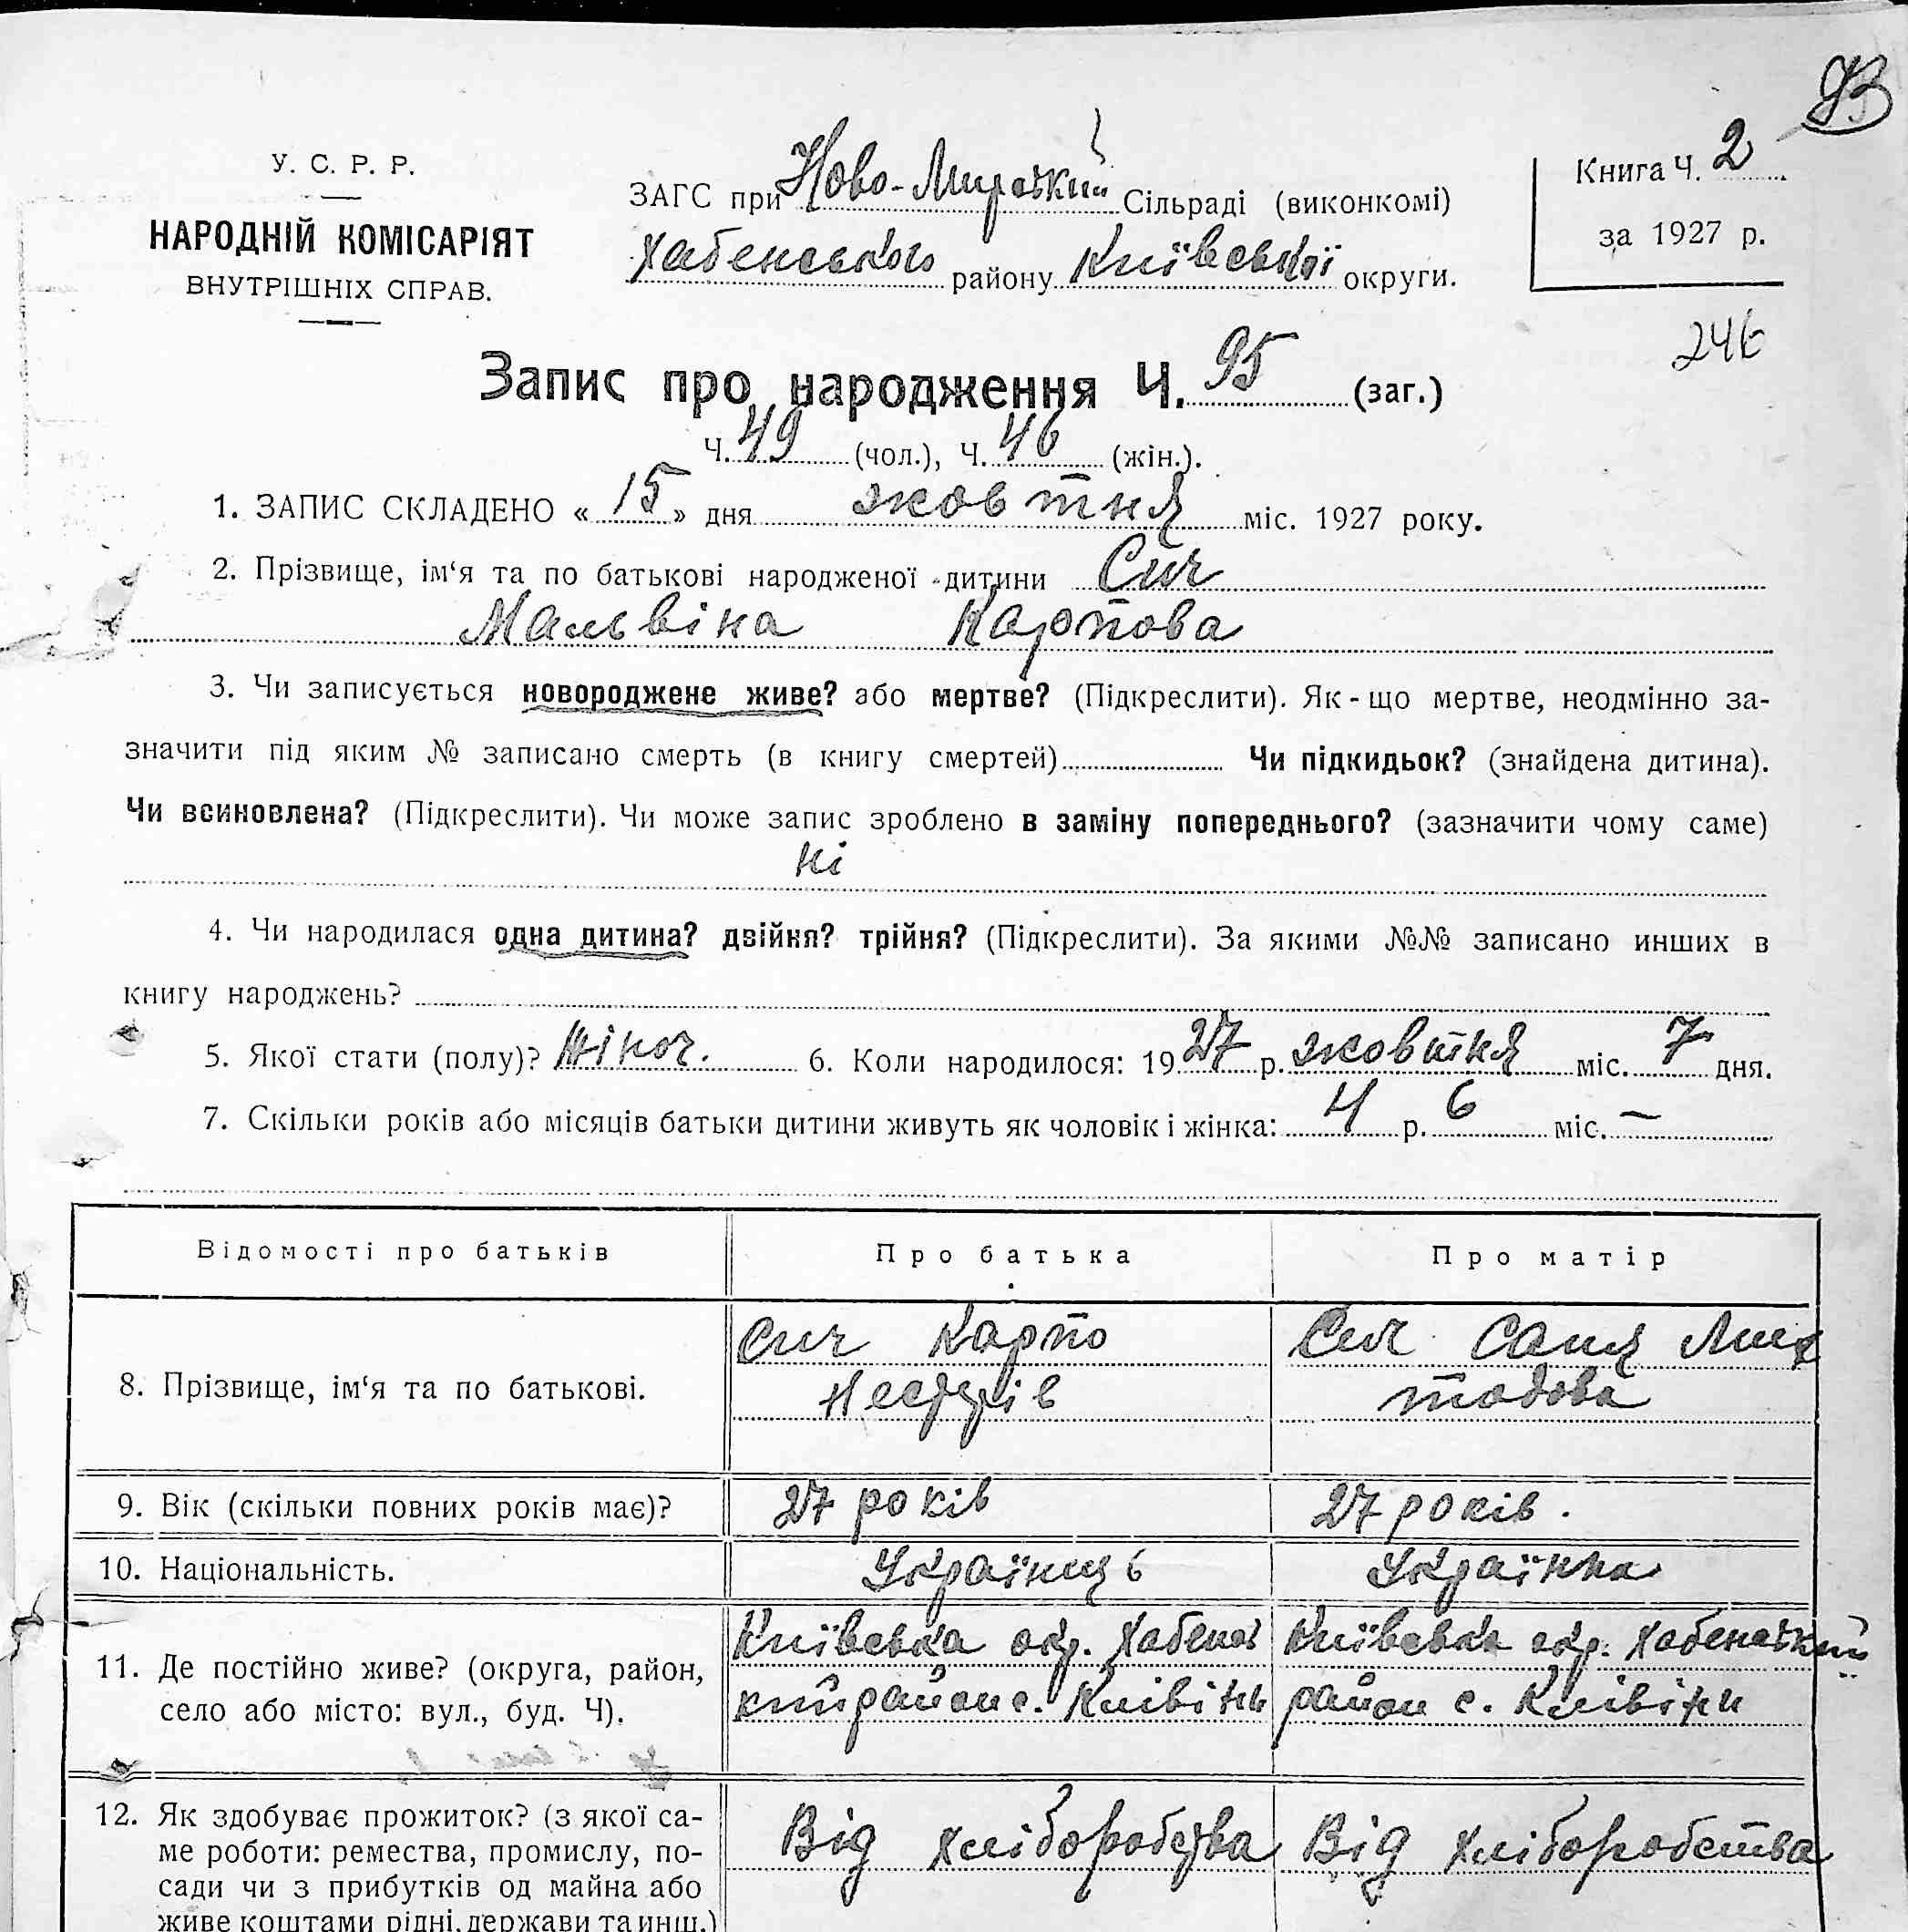 93
У. С. Р. Р.
НАРОДНІЙ КОМІСАРІЯТ
ВНУТРІШНІХ СПРАВ.
ЗАГС при Ново-Мирський Сільраді (виконкомі)
Хабенського району Київської округи.
Книга Ч. 2
за 1927 р.
246
Запис про народження Ч. 95 (заг.)
Ч. 49 (чол.), Ч. 46 (жін.).
1. ЗАПИС СКЛАДЕНО « 15 » дня жовтня міс. 1927 року.
2. Прізвище, ім‘я та по батькові народженої дитини Сич
Мальвіна Карпова
3. Чи записується новороджене живе? або мертве? (Підкреслити). Як-що мертве, неодмінно за-
значити під яким № записано смерть (в книгу смертей) Чи підкидьок? (знайдена дитина).
Чи всиновлена? (Підкреслити). Чи може запис зроблено в заміну попереднього? (зазначити чому саме)
ні
4. Чи народилася одна дитина? двійня? трійня? (Підкреслити). За якими №№ записано инших в
книгу народжень?
5. Якої стати (полу)? жіноч. 6. Коли народилося: 1927 р. жовтня міс. 7 дня.
7. Скільки років або місяців батьки дитини живуть як чоловік і жінка: 4 р. 6 міс. —
Відомості про батьків Про батька Про матір
8. Прізвище, ім‘я та по батькові.
Сич Карпо
Сич Саня
9. Вік (скільки повних років має)? 27 років 27 років.
10. Національність. Українець Українка
11. Де постійно живе? (округа, район,
село або місто: вул., буд. Ч).
Київська окр. Хабенсь
кий район с. Клівіни
Київська окр. Хабенський
район с. Клівіни
12. Як здобуває прожиток? (з якої са-
ме роботи: ремества, промислу, по-
сади чи з прибутків од майна або
живе коштами рідні, держави та инш.)
Від хліборобства
Від хліборобства